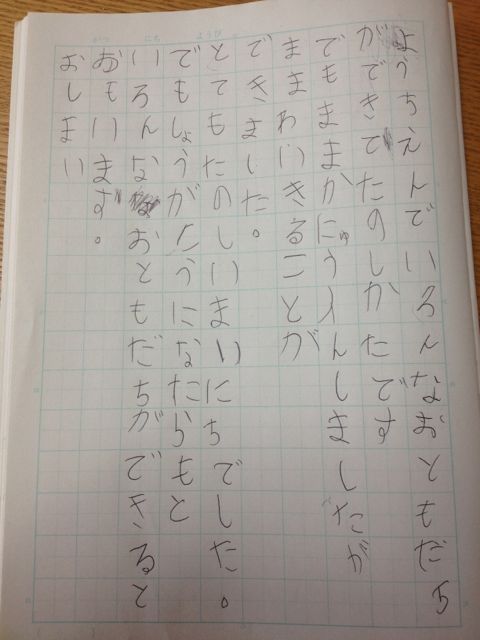 がつ にち ようび
ようちえんでいろんなおともだち
ができてたのしかたです
でもままがにゅういんしましたが
ままわいきることが
できました。
とてもたのしいまいにちでした。
でもしょうがこうになたらもと
いろんなおともだちができると
おもいます。
おしまい